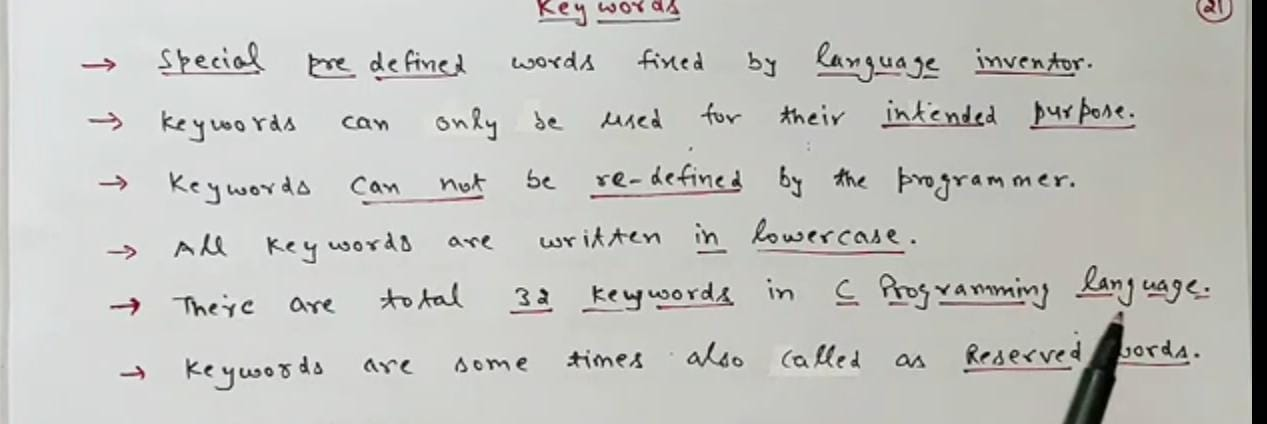 Keywords
21
→ Special pre defined words fixed by language inventor.
→ Keywords can only be used for their intended purpose.
→ Keywords can not be re-defined by the programmer.
→ All Keywords are written in lowercase.
→ There are total 32 keywords in C Programming language.
→ Keywords are some times also called as Reserved words.